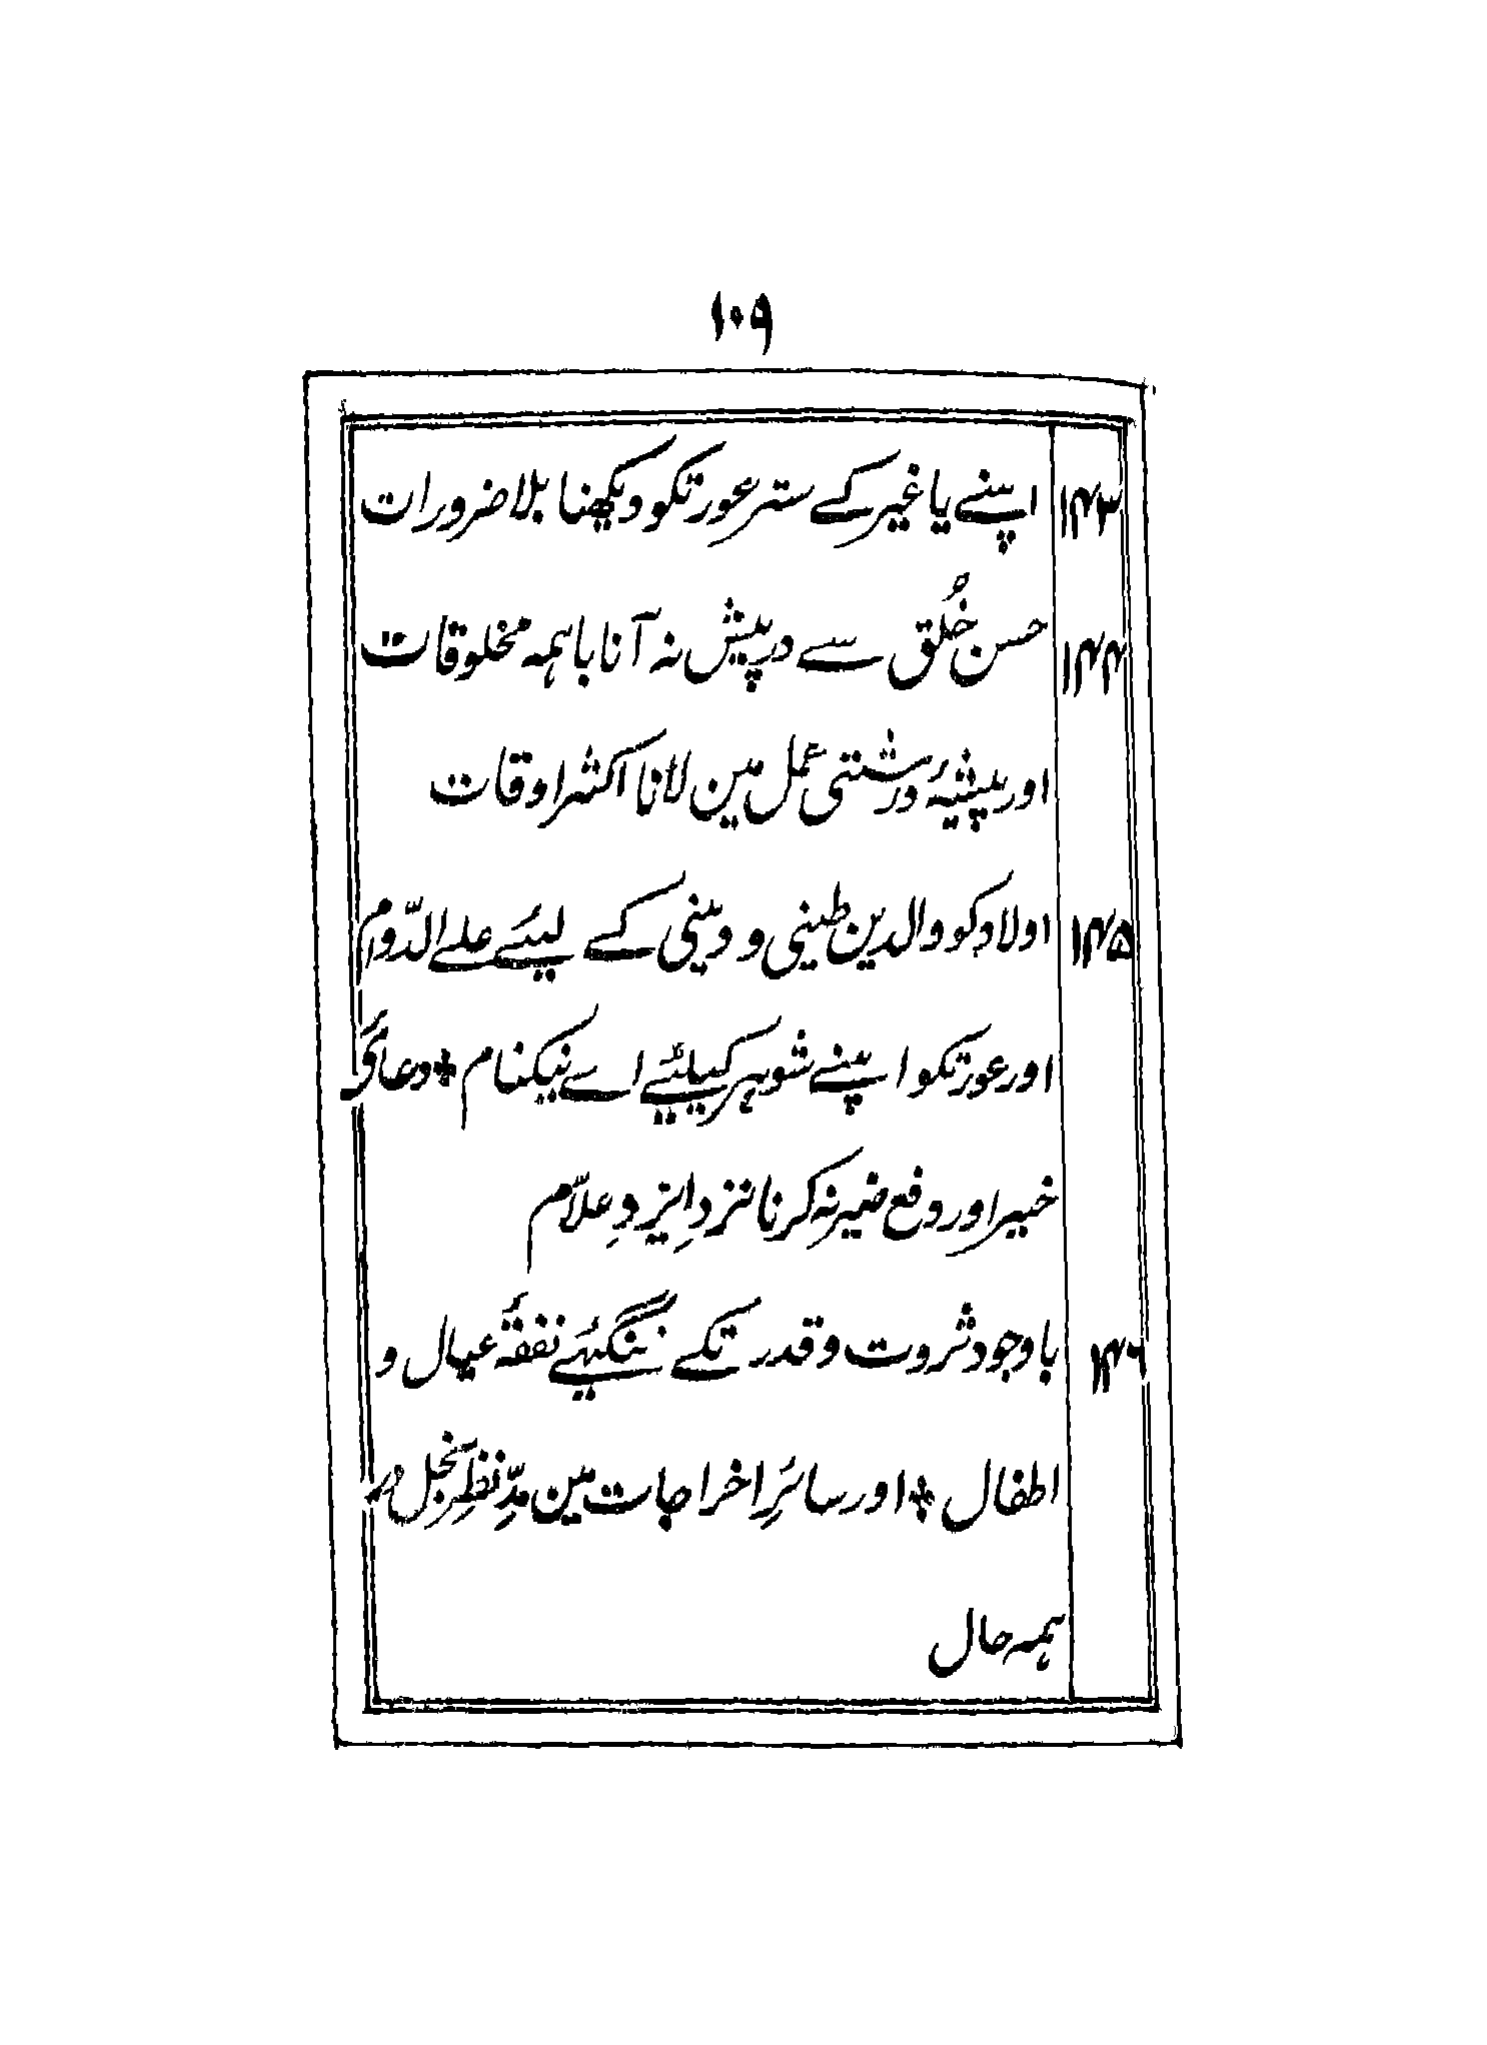 ۱۰۹
۱۴۳ اپنے یا غیر کے ستر عورتکو دیکھنا بلا ضرورات
۱۴۴ حسن خُلق سے درپیش نہ آنا با ہمہ مخلوقات
اور پیشۂ دُرشتی عمل مین لانا اکثر اوقات
۱۴۵ اولاد کو والدین طینی و دینی کے لیئے علے الدّوام
اور عورتکو اپنے شوہر کیلئے اے نیکنام * دعائے
خیر اور دفع ضیر نہ کرنا نزدِ ایزدِ علاّم
۱۴۶ با وجود ثروت و قدرتکے نفقۂ عیال و
اطفال * اور سائرِ اخراجات مین مدِّ نظرِ بخل در
ہمہ حال